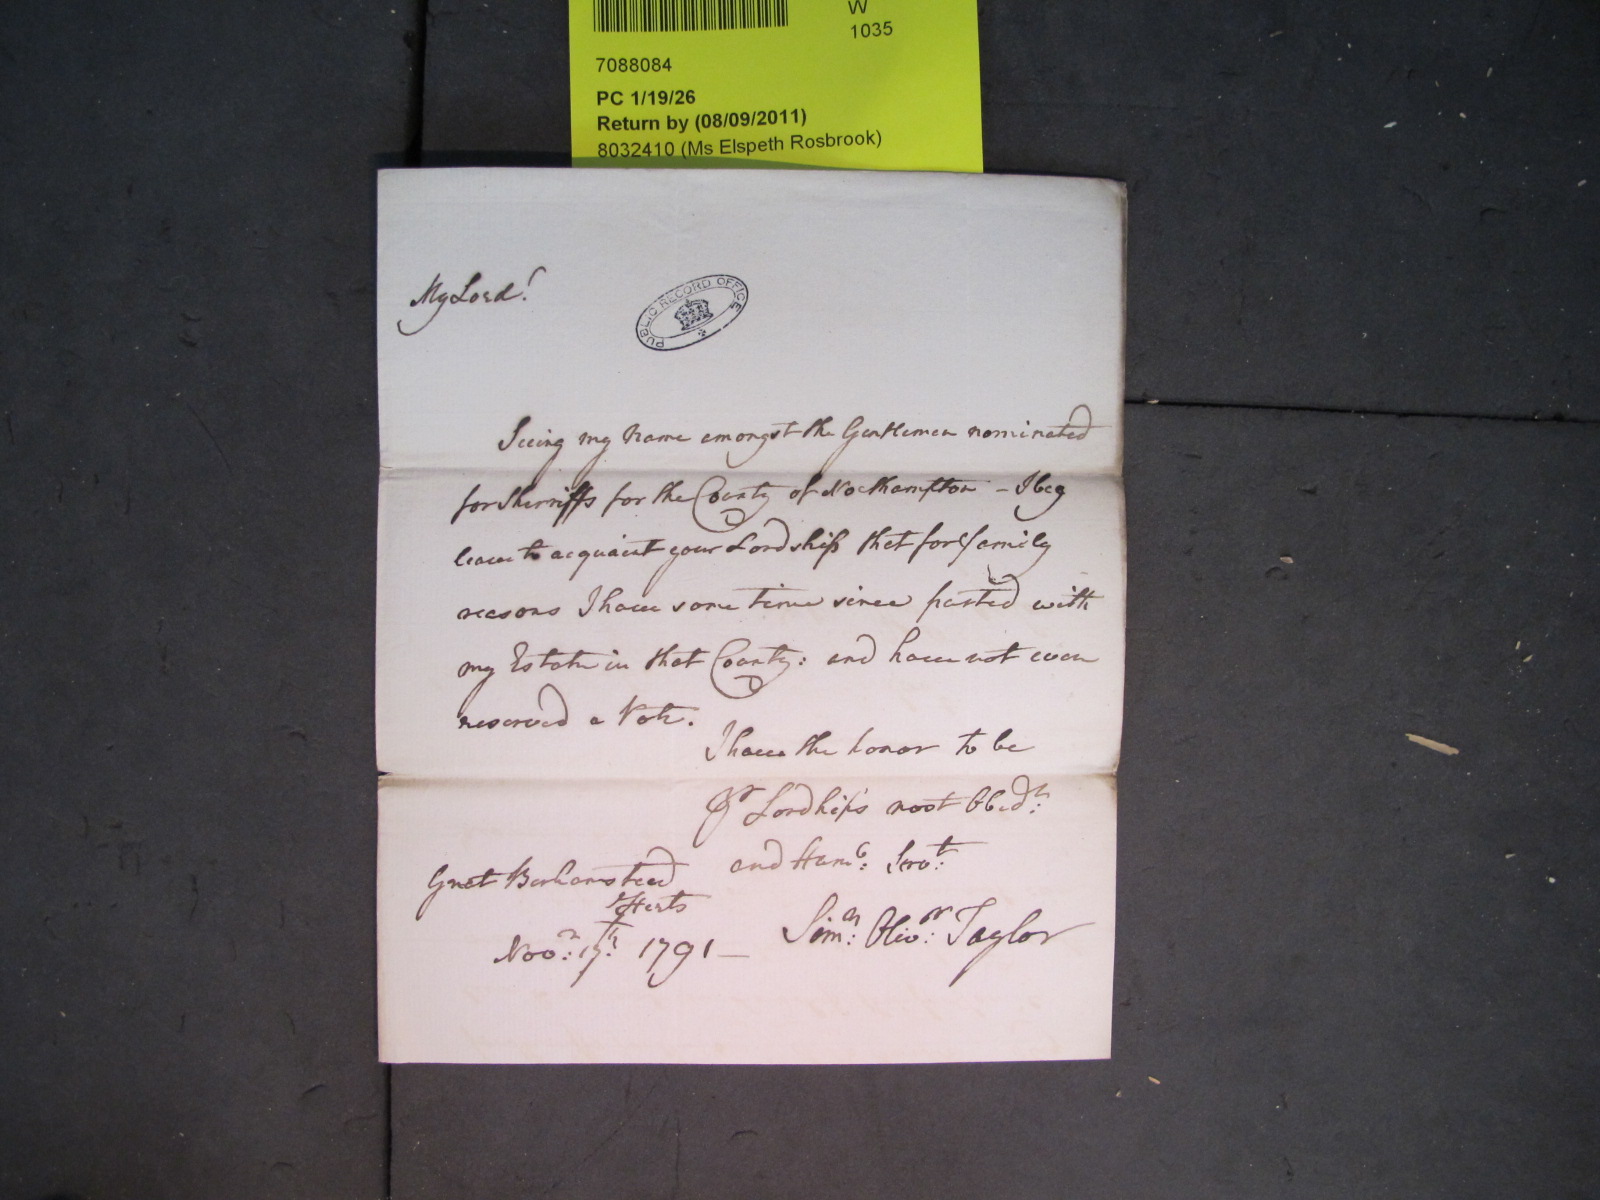 W
1035
7088084
PC 1/19/26
Return by (08/09/2011)
8032410 (Ms Elspeth Rosbrook)
My Lord!
PUBLIC RECORD OFFICE
Seeing my Name amongst the Gentlemen nominated
for Sherriffs for the County of Northampton - I beg
leave to acquaint your Lordship that for family
reasons I have some time since parted with
my Estate in that County: and have not even
reserved a Vote.
I have the honor to be
Yr Lordhips most Obedt:
and Humb: Servt:
Great Berhamstead
Herts
Novr: 17th: 1791—
Simn: Olivr: Taylor